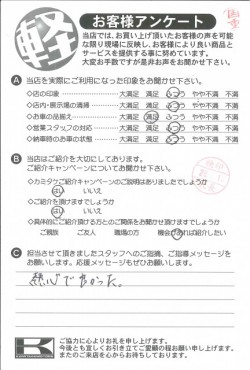 軽
お客様アンケート
当店では、お買い上げ頂いたお客様の声を可能
な限り現場に反映し、お客様により良い商品と
サービスを提供する事に努めています。
大変お手数ですが是非お声をお聞かせ下さい。
A 当店を実際にご利用になった印象をお聞かせ下さい。
◇店の印象 大満足 満足 ふつう やや不満 不満
◇店内・展示場の清掃 大満足 満足 ふつう やや不満 不満
◇お車の品揃え 大満足 満足 ふつう やや不満 不満
◇営業スタッフの対応 大満足 満足 ふつう やや不満 不満
◇納車時のお車の状態 大満足 満足 ふつう やや不満 不満
B 当店はご紹介を大切にしております。
ご紹介キャンペーンについてお聞かせ下さい。
◇カミタケご紹介キャンペーンのご説明はありましたでしょうか
はい いいえ
◇ご紹介を頂けますでしょうか
はい いいえ
◇具体的にご紹介頂ける方とのご関係をお聞かせ頂けますでしょうか
ご親族 ご友人 職場の方 機会があれば紹介したい
C 担当させて頂きましたスタッフへのご指摘、ご指導メッセージを
お願いします。応援メッセージもぜひお願いします。
熱心で良かった。
K
ご協力に心よりお礼を申し上げます。
今後とも宜しくお引き立てご愛顧の程お願い申し上げます。
またのご来店を心からお待ちしております。